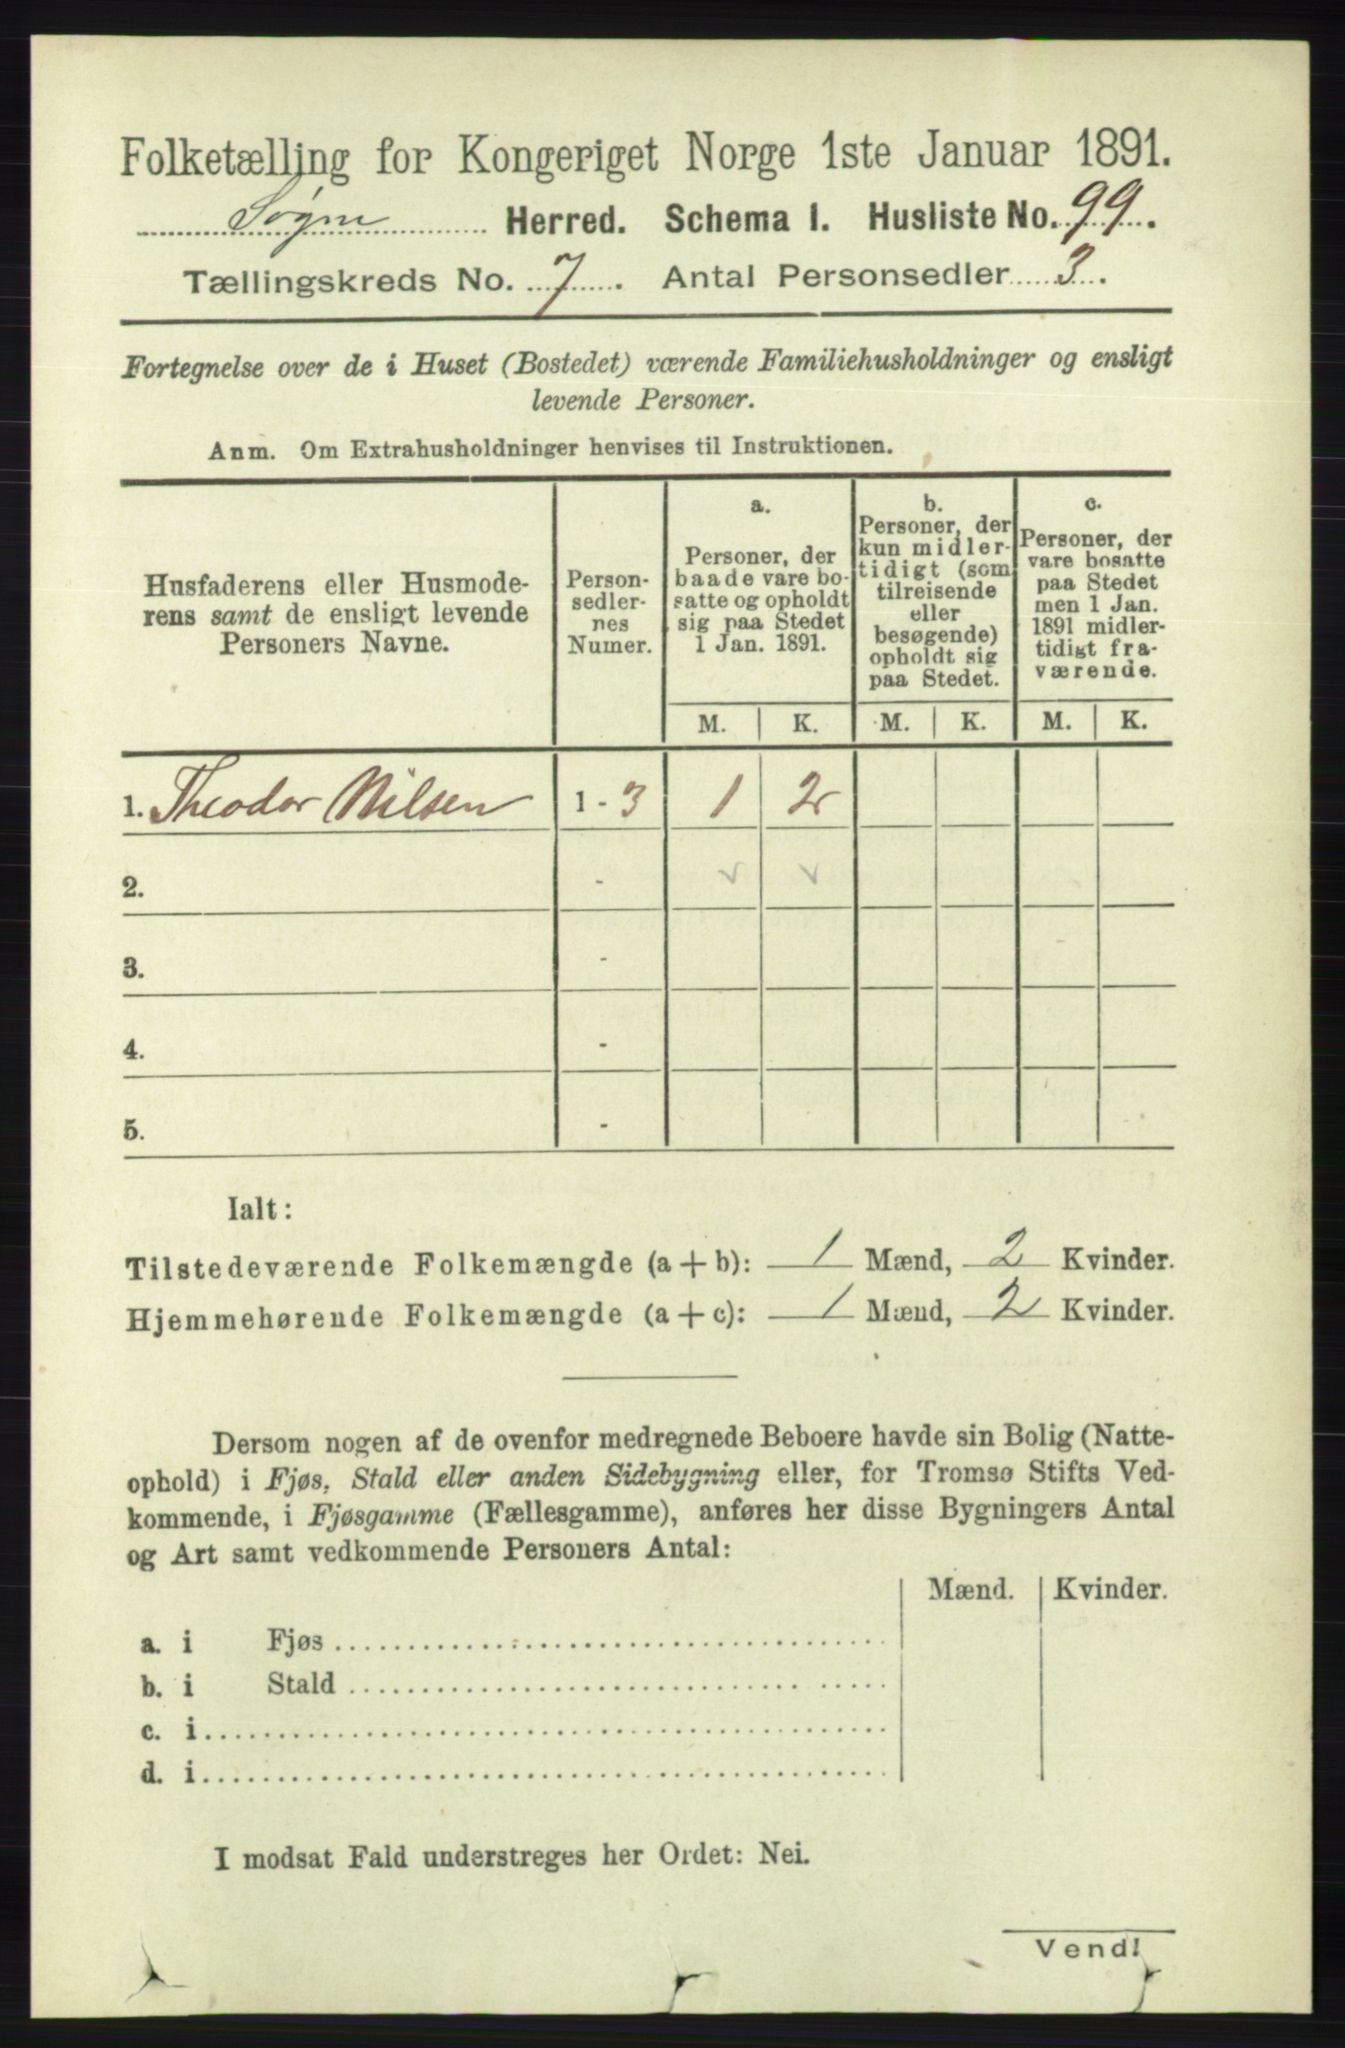 Folketælling for Kongeriget Norge 1ste Januar 1891.
Søgne Herred. Schema 1. Husliste No. 99.
Tællingskreds No. 7. Antal Personsedler 3.
Fortegnelse over de i Huset (Bostedet) værende Familiehusholdninger og ensligt
levende Personer.
Anm. Om Extrahusholdninger henvises til Instruktionen.
Husfaderens eller Husmode-
rens samt de ensligt levende
Personers Navne.
Person-
sedler-
nes
Numer.
a.
Personer, der
baade vare bo-
satte og opholdt
sig paa Stedet
1 Jan. 1891.
b.
Personer, der
kun midler-
tidigt (som
tilreisende
eller
besøgende)
opholdt sig
paa Stedet.
c.
Personer, der
vare bosatte
paa Stedet
men 1 Jan.
1891 midler-
tidigt fra-
værende.
M. K. M. K. M. K.
1. Theodor Nilsen 1 - 3 1 2
2. - v v
3. -
4. -
5. -
Ialt:
Tilstedeværende Folkemængde (a + b): 1 Mænd, 2 Kvinder.
Hjemmehørende Folkemængde (a + c): 1 Mænd, 2 Kvinder.
Dersom nogen af de ovenfor medregnede Beboere havde sin Bolig (Natte-
ophold) i Fjøs, Stald eller anden Sidebygning eller, for Tromsø Stifts Ved-
kommende, i Fjøsgamme (Fællesgamme), anføres her disse Bygningers Antal
og Art samt vedkommende Personers Antal:
Mænd. Kvinder.
a. i Fjøs
b. i Stald
c. i
d. i
I modsat Fald understreges her Ordet: Nei.
Vend!